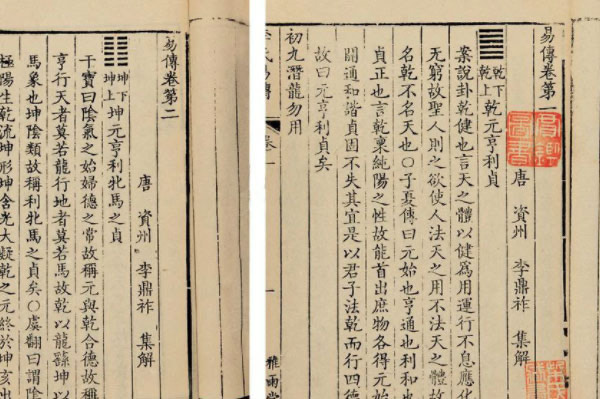 易傳卷第一
唐 資州 李鼎祚 集解
乾下乾上 乾元亨利貞
案說卦乾健也言天之體以健為用運行不息應化
无窮故聖人則之欲使人法天之用不法天之體故
名乾不名天也〇子夏傳曰元始也亨通也利和也
貞正也言乾稟純陽之性故能首出庶物各得元始
開通和諧貞固不失其宜是以君子法乾而行四德
故曰元亨利貞矣
初九潛龍勿用
李氏易傳 卷一
一
雅雨堂
易傳卷第二
唐 資州 李鼎祚 集解
坤下坤上 坤元亨利牝馬之貞
干寶曰陰氣之始婦德之常故稱元與乾合德故稱
亨行天者莫若龍行地者莫若馬故乾以龍繇坤以
馬象也坤陰類故稱利牝馬之貞矣〇虞翻曰謂陰
極陽生乾流坤形坤含光大凝乾之元終於坤亥出